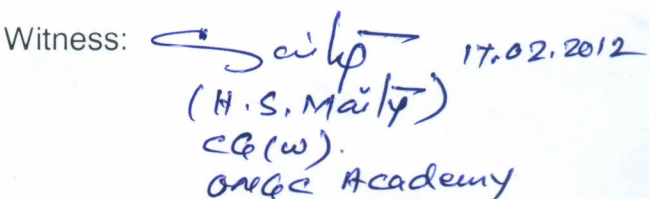 Witness: 17.02.2012
(H.S. Maily)
CG(W).
ONGC Academy